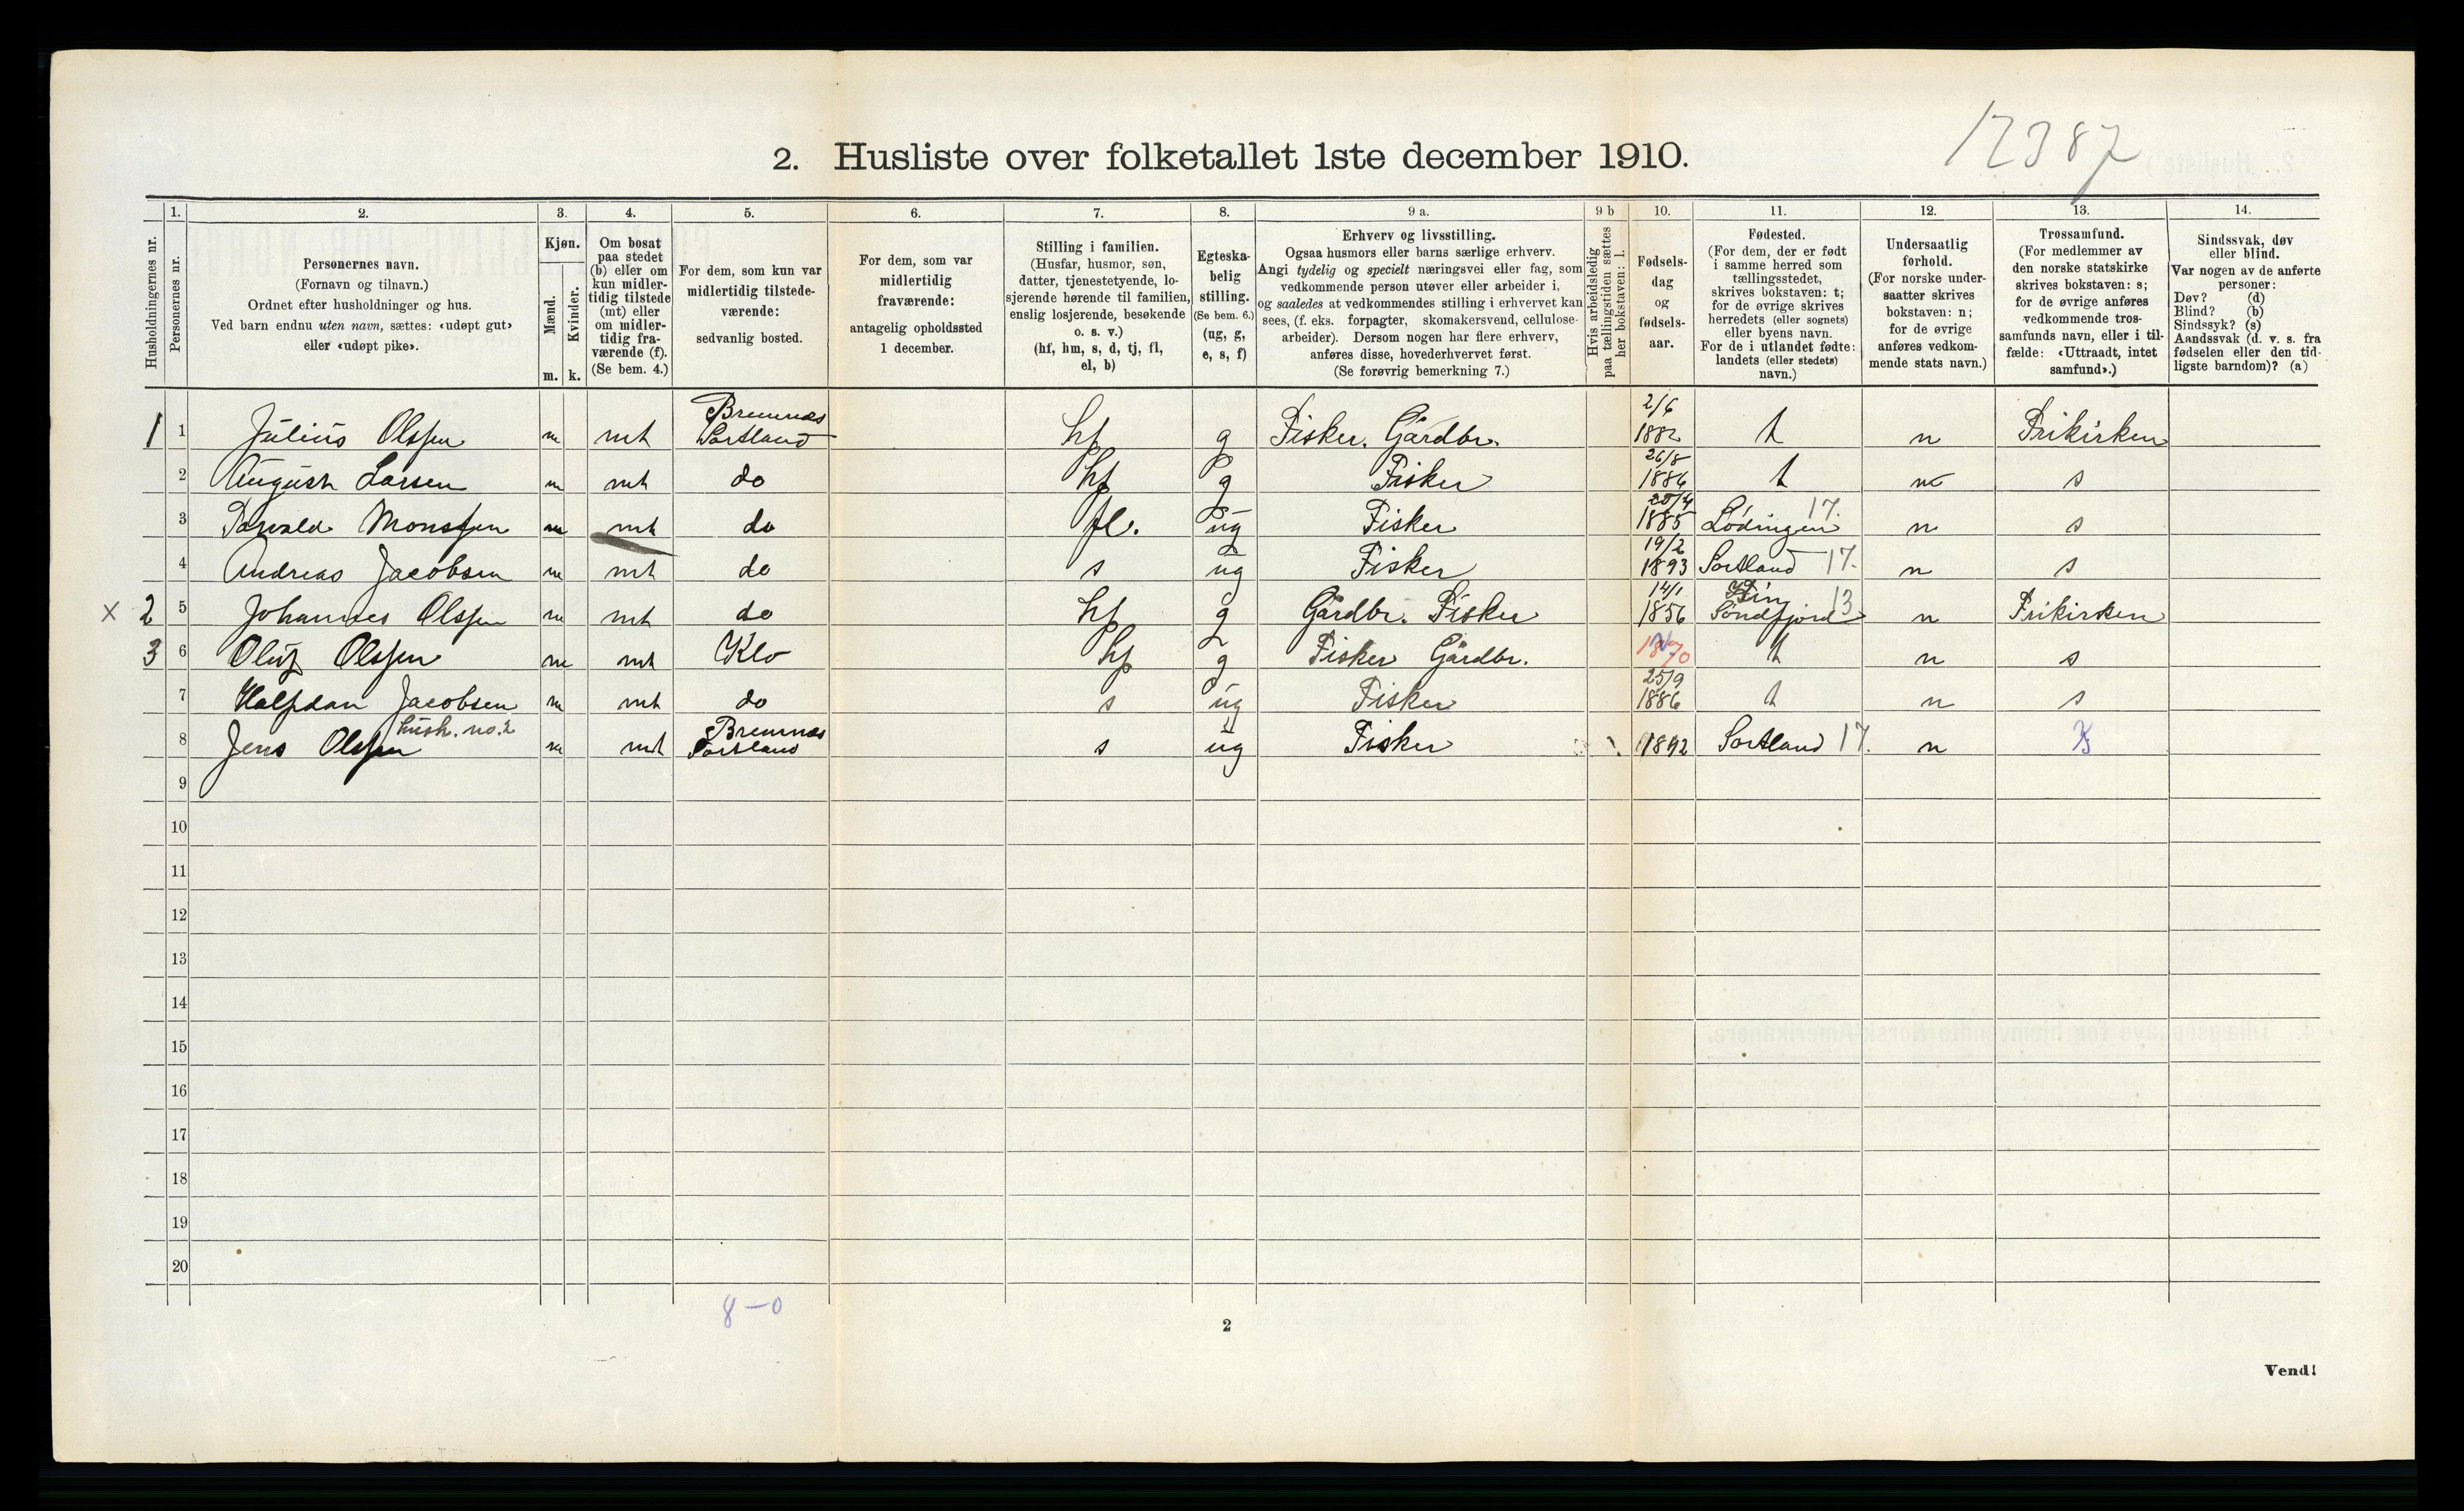 12387
2. Husliste over folketallet 1ste december 1910.
Husholdningernes nr.
1.
Personernes nr.
2.
Personernes navn.
(Fornavn og tilnavn.)
Ordnet efter husholdninger og hus.
Ved barn endnu uten navn, sættes: «udøpt gut»
eller «udøpt pike».
3.
Kjøn.
Mænd.
Kvinder.
m. k.
4.
Om bosat
paa stedet
(b) eller om
kun midler-
tidig tilstede
(mt) eller
om midler-
tidig fra-
værende (f).
(Se bem. 4.)
5.
For dem, som kun var
midlertidig tilstede-
værende:
sedvanlig bosted.
6.
For dem, som var
midlertidig
fraværende:
antagelig opholdssted
1 december.
7.
Stilling i familien.
(Husfar, husmor, søn,
datter, tjenestetyende, lo-
sjerende hørende til familien,
enslig losjerende, besøkende
o. s. v.)
(hf, hm, s, d, tj, fl,
el, b)
8.
Egteska-
belig
stilling.
(Se bem. 6.)
(ug, g,
e, s, f)
9 a.
Erhverv og livsstilling.
Ogsaa husmors eller barns særlige erhverv.
Angi tydelig og specielt næringsvei eller fag, som
vedkommende person utøver eller arbeider i,
og saaledes at vedkommendes stilling i erhvervet kan
sees, (f. eks. forpagter, skomakersvend, cellulose-
arbeider). Dersom nogen har flere erhverv,
anføres disse, hovederhvervet først.
(Se forøvrig bemerkning 7.)
9 b
Hvis arbeidsledig
paa tællingstiden sættes
her bokstaven: l.
10.
Fødsels-
dag
og
fødsels-
aar.
11.
Fødested.
(For dem, der er født
i samme herred som
tællingsstedet,
skrives bokstaven: t;
for de øvrige skrives
herredets (eller sognets)
eller byens navn.
For de i utlandet fødte:
landets (eller stedets)
navn.)
12.
Undersaatlig
forhold.
(For norske under-
saatter skrives
bokstaven: n;
for de øvrige
anføres vedkom-
mende stats navn.)
13.
Trossamfund.
(For medlemmer av
den norske statskirke
skrives bokstaven: s;
for de øvrige anføres
vedkommende tros-
samfunds navn, eller i til-
fælde: «Uttraadt, intet
samfund».)
14.
Sindssvak, døv
eller blind.
Var nogen av de anførte
personer:
Døv? (d)
Blind? (b)
Sindssyk? (s)
Aandssvak (d. v. s. fra
fødselen eller den tid-
ligste barndom)? (a)
1 1 Julius Olssen m mt Bremnæs Sortland hf g Fisker. Gårdbr. 2/6 1882 t n Frikirken
2 August Larsen m mt do hf g Fisker 26/8 1886 t n s
3 Monssen m mt do fl. ug Fisker 1885 Lödingen 17. n s
4 Andreas Jacobsen m mt do s ug Fisker 19/2 1893 Sortland 17. n s
x 2 5 Johannes Olssen m mt do hf g Gårdbr. Fisker 14/1 1856 Söndfjord 13 n Frikirken
3 6 Oluf Olssen m mt Klo hf g Fisker Gårdbr. 1870 t n s
7 Halfdan Jacobsen m mt do s ug Fisker 25/9 1886 t n s
8 Jens Olssen hush. no. 2 m mt Bremnæs Sortland s ug Fisker 1892 Sortland 17. n
9
10
11
12
13
14
15
16
17
18
19
20
8-0
2
Vend!